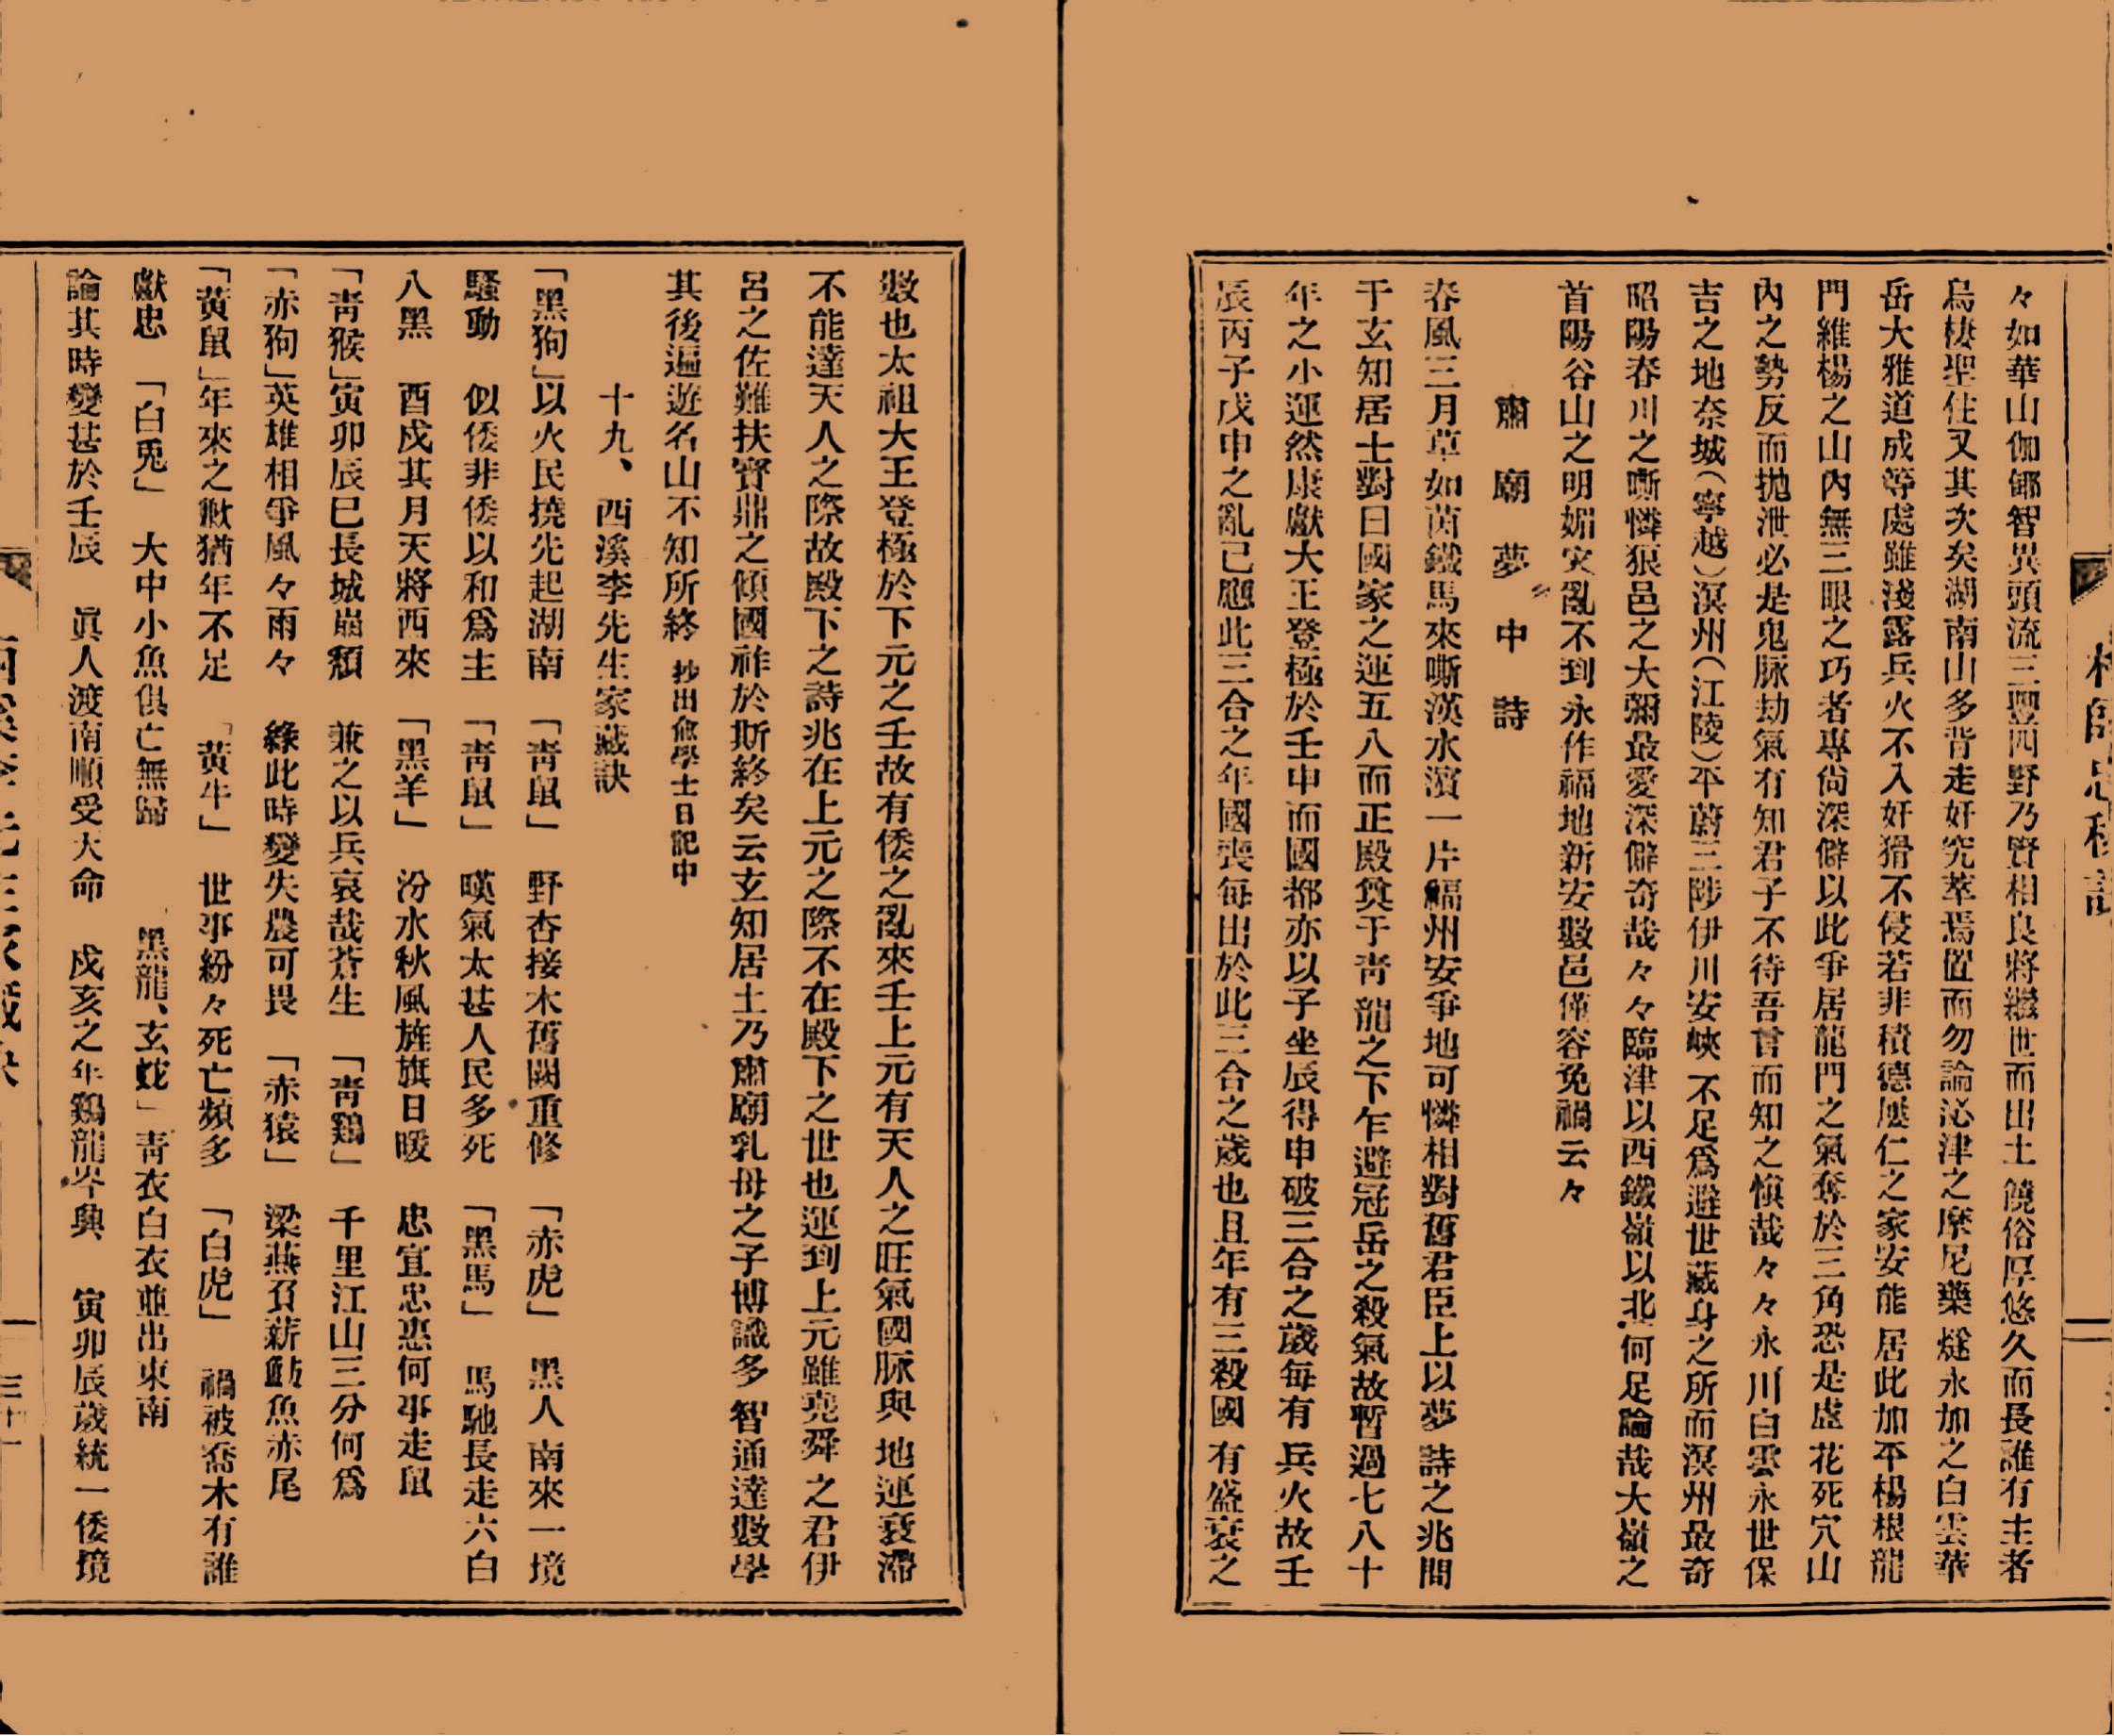 々如華山伽倻智異頭流三豐四野乃賢相良將繼世而出土饒俗厚悠久而長誰有主者
烏棲聖住又其次矣湖南山多背走奸究萃焉置而勿論沁津之摩尼藥燧永加之白雲華
岳大雅道成等處雖淺露兵火不入奸猾不侵若非積德屢仁之家安能居此加平楊根龍
門維楊之山內無三眼之巧者專尙深僻以此爭居龍門之氣奪於三角恐是虛花死穴山
內之勢反而拋泄必是鬼脈劫氣有知君子不待吾言而知之愼哉々々永川白雲永世保
吉之地奈城(寧越)溟州(江陵)平蔚三陟伊川安峽不足爲避世藏身之所而溟州最奇
昭陽春川之嘶憐狼邑之大彌最愛深僻奇哉々々臨津以西鐵嶺以北何足論哉大嶺之
首陽谷山之明媚灾亂不到永作福地新安數邑僅容免禍云々
肅廟夢中詩
春風三月草如茵鐵馬來嘶漢水濱一片福州安爭地可憐相對舊君臣上以夢詩之兆間
于玄知居士對曰國家之運五八而正殿奠于靑龍之下乍避冠岳之殺氣故暫過七八十
年之小運然康獻大王登極於壬申而國都亦以子坐辰得申破三合之歲每有兵火故壬
辰丙子戊申之亂已應此三合之年國喪每出於此三合之歲也且年有三殺國有盛衰之
數也太祖大王登極於下元之壬故有倭之亂來壬上元有天人之旺氣國脈與地運衰滯
不能達天人之際故殿下之詩兆在上元之際不在殿下之世也運到上元雖堯舜之君伊
呂之佐難扶寶鼎之傾國祚於斯終矣云玄知居士乃肅廟乳母之子博識多智通達數學
其後遍遊名山不知所終 抄出僉學士日記中
十九、西溪李先生家藏訣
「黑狗」以火民撓先起湖南 「靑鼠」 野杏接木舊闕重修 「赤虎」 黑人南來一境
騷動 似倭非倭以和爲主 「靑鼠」 嘆氣太甚人民多死 「黑馬」 馬馳長走六白
八黑 酉戌其月天將西來 「黑羊」 汾水秋風旌旗日暖 忠宜忠悳何事走鼠
「靑猴」寅卯辰巳長城崩頹 兼之以兵哀哉蒼生 「靑鷄」 千里江山三分何爲
「赤狗」英雄相爭風々雨々 緣此時變失農可畏 「赤猿」 梁燕負薪魚赤尾
「黃鼠」年來之歉猶年不足 「黃牛」 世事紛々死亡頻多 「白虎」 禍被喬木有誰
獻忠 「白兎」 大中小魚俱亡無歸 黑龍、玄蛇」靑衣白衣並出東南
論其時變甚於壬辰 眞人渡南順受大命 戌亥之年鷄龍岑興 寅卯辰歲統一倭境